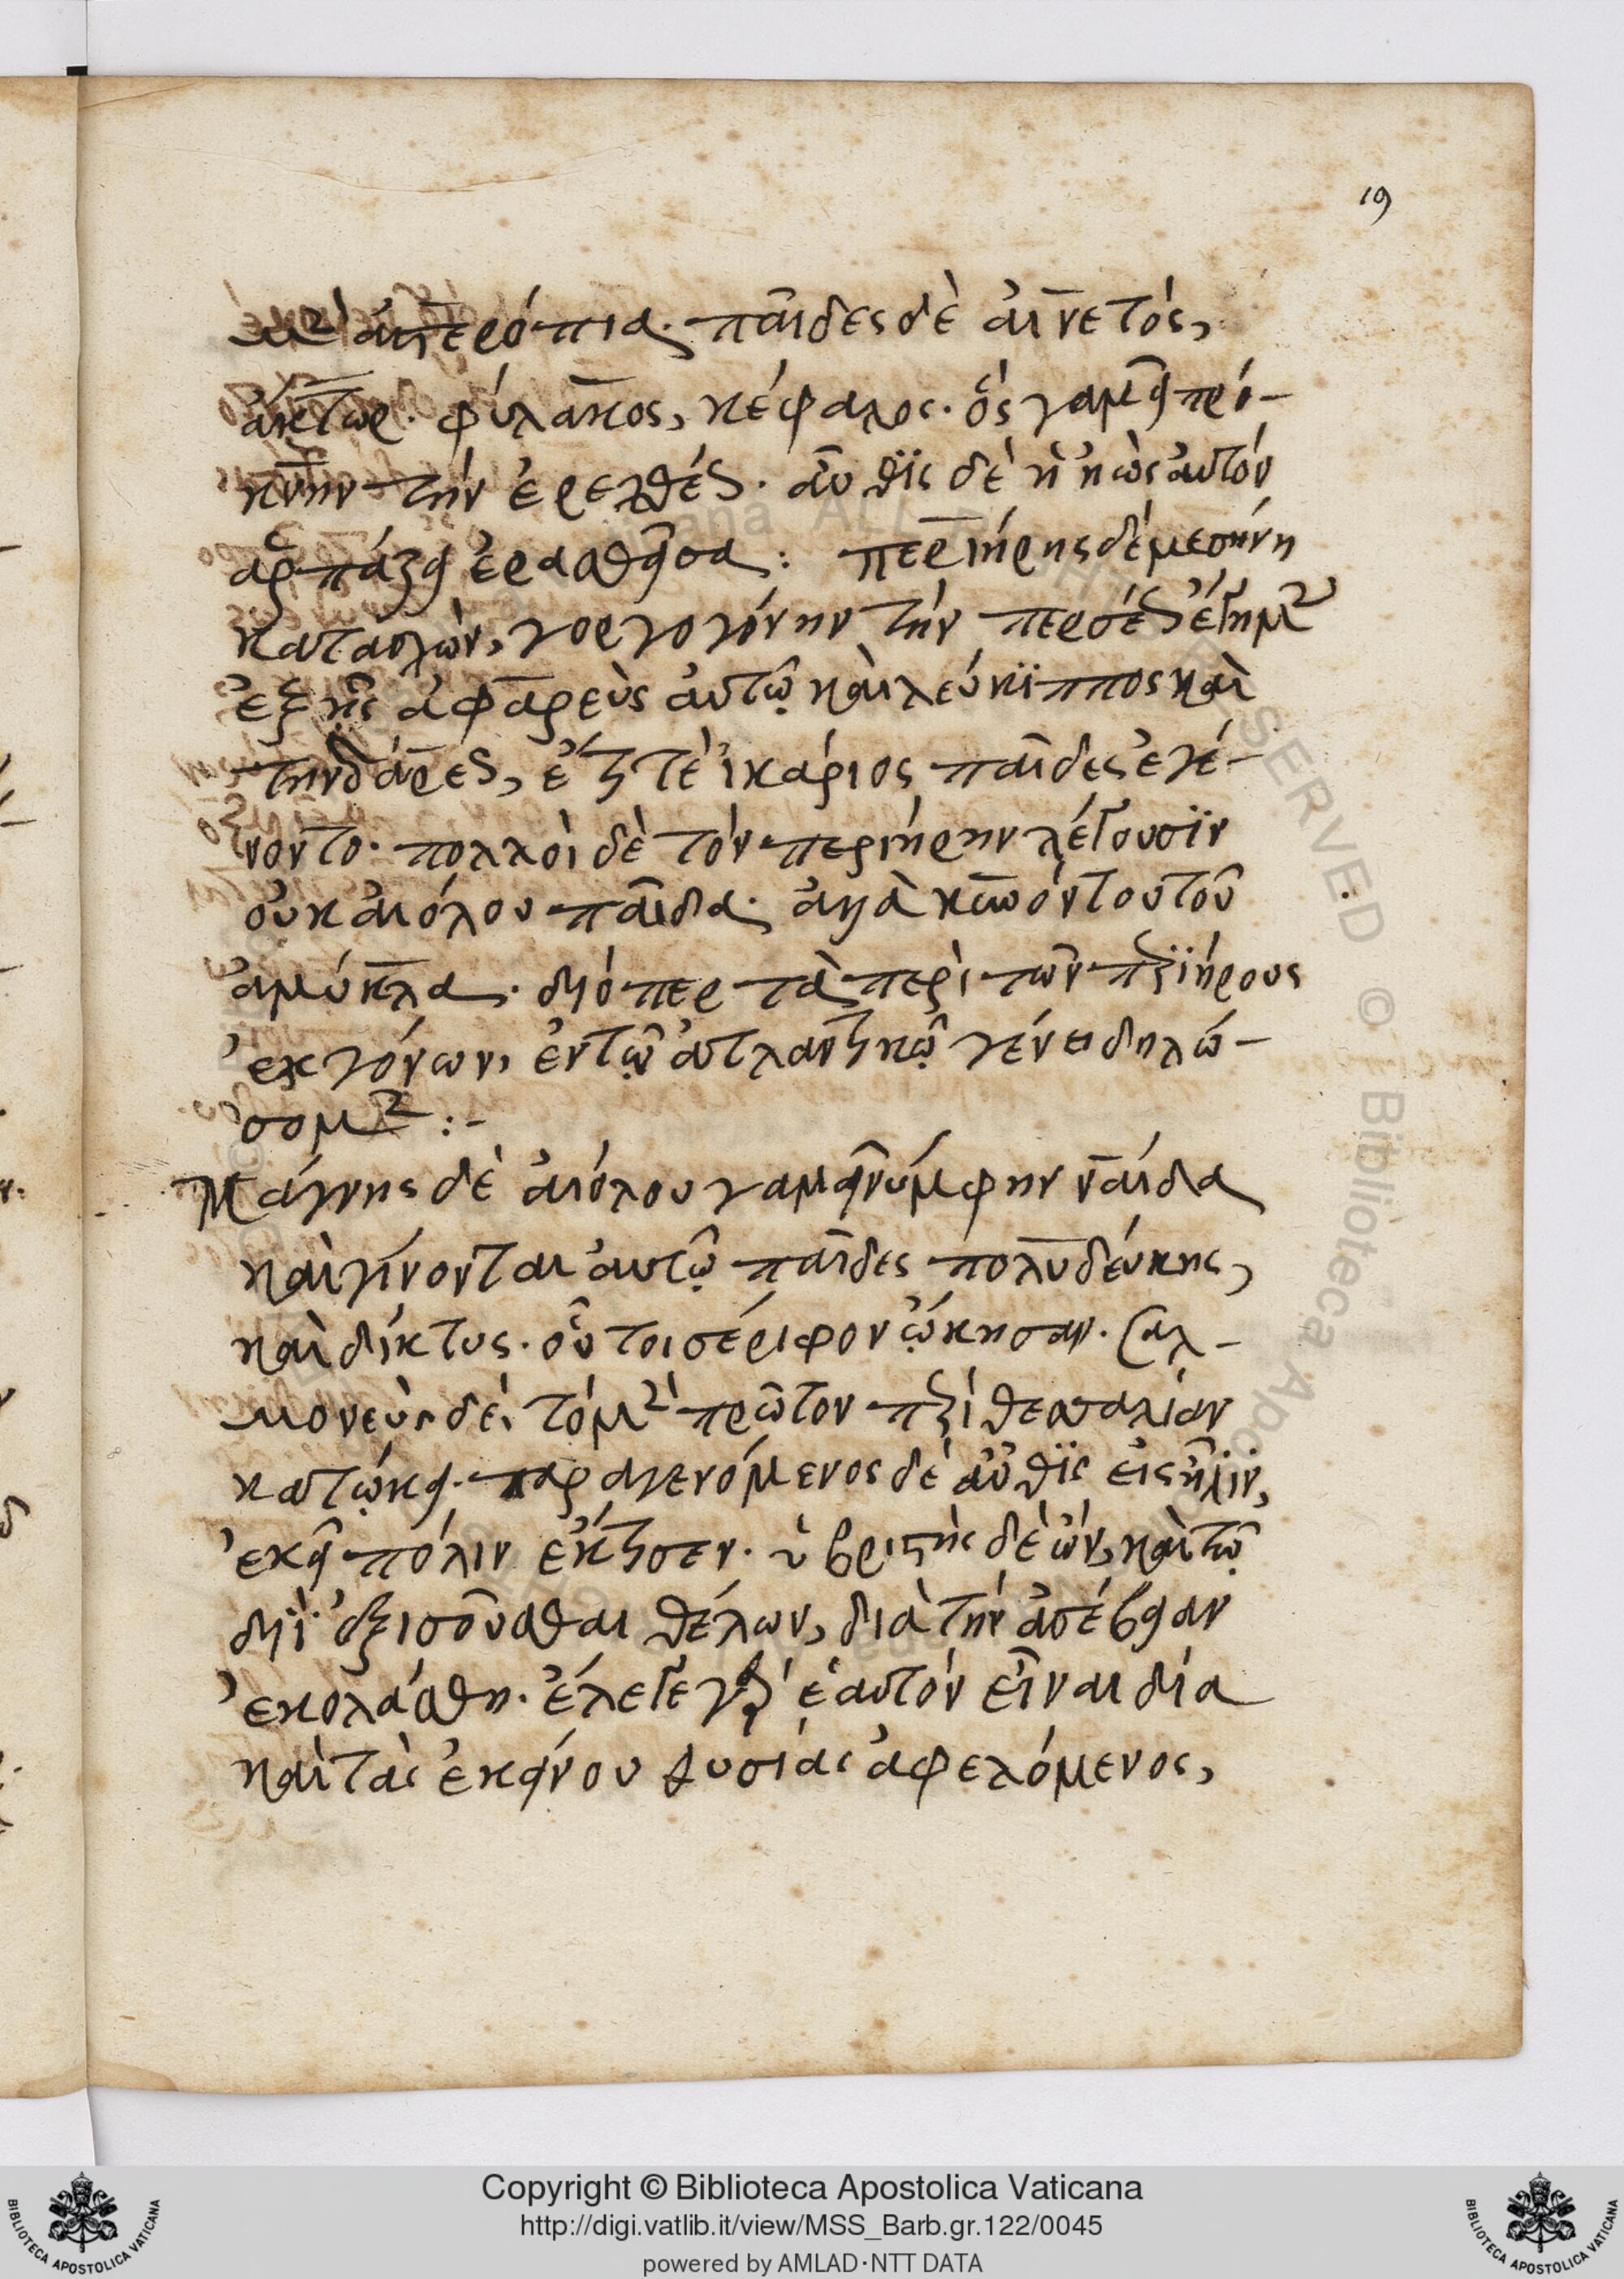 19
μὲν ἀστερόπια. παῖδες δὲ αἰνετός,
ἄκτωρ. φύλακος, κέφαλος. ὃς γαμεῖ πρό-
κνην τὴν ἐρεχθέως. αὖθις δὲ ἡ ἠὼς αὐτὸν
ἁρπάζει ἐρασθεῖσα: περιήρης δὲ μεσήνη
κατασχὼν, γοργογόνην τὴν περσέως ἔγημεν
ἐξ ἧς ἀφαρεὺς αὐτῷ καὶ λεύκιππος καὶ
τηνδάρεως, ἔτι τὲ ἰκάριος παῖδες ἐγέ-
νοντο. πολλοὶ δὲ τὸν περιήρην λέγουσιν
οὐκ αἰόλου παῖδα. ἀλλὰ κυνόντου τοῦ
ἀμύκλα. διόπερ τὰ περὶ τῶν περιήρους
ἐκγόνων, ἐν τῷ ἀτλαντικῷ γένει δηλώ-
σομεν :-
Μάγνης δὲ αἰόλου γαμεῖ νύμφην ναΐδα
καὶ γίνονται αὐτῷ παῖδες πολυδεύκης,
καὶ δίκτυς. οὗτοι σέριφον ᾤκησαν. Σαλ-
μονεὺς δὲ, τὸ μὲν πρῶτον περὶ θεσσαλίαν
κατῴκει. παραγενόμενος δὲ αὖθις εἰς ἦλιν,
ἐκεῖ πόλιν ἔκτισεν. ὑβριστὴς δὲ ὢν, καὶ τῷ
διῒ ἐξισοῦσθαι θέλων, διὰ τὴν ἀσέβειαν
ἐκολάσθη. ἔλεγε γὰρ ἑαυτὸν εἶναι δία
καὶ τὰς ἐκείνου θυσίας ἀφελόμενος,
Copyright © Biblioteca Apostolica Vaticana
http://digi.vatlib.it/view/MSS_Barb.gr.122/0045
powered by AMLAD·NTT DATA
BIBLIOTECA APOSTOLICA VATICANA
BIBLIOTECA APOSTOLICA VATICANA